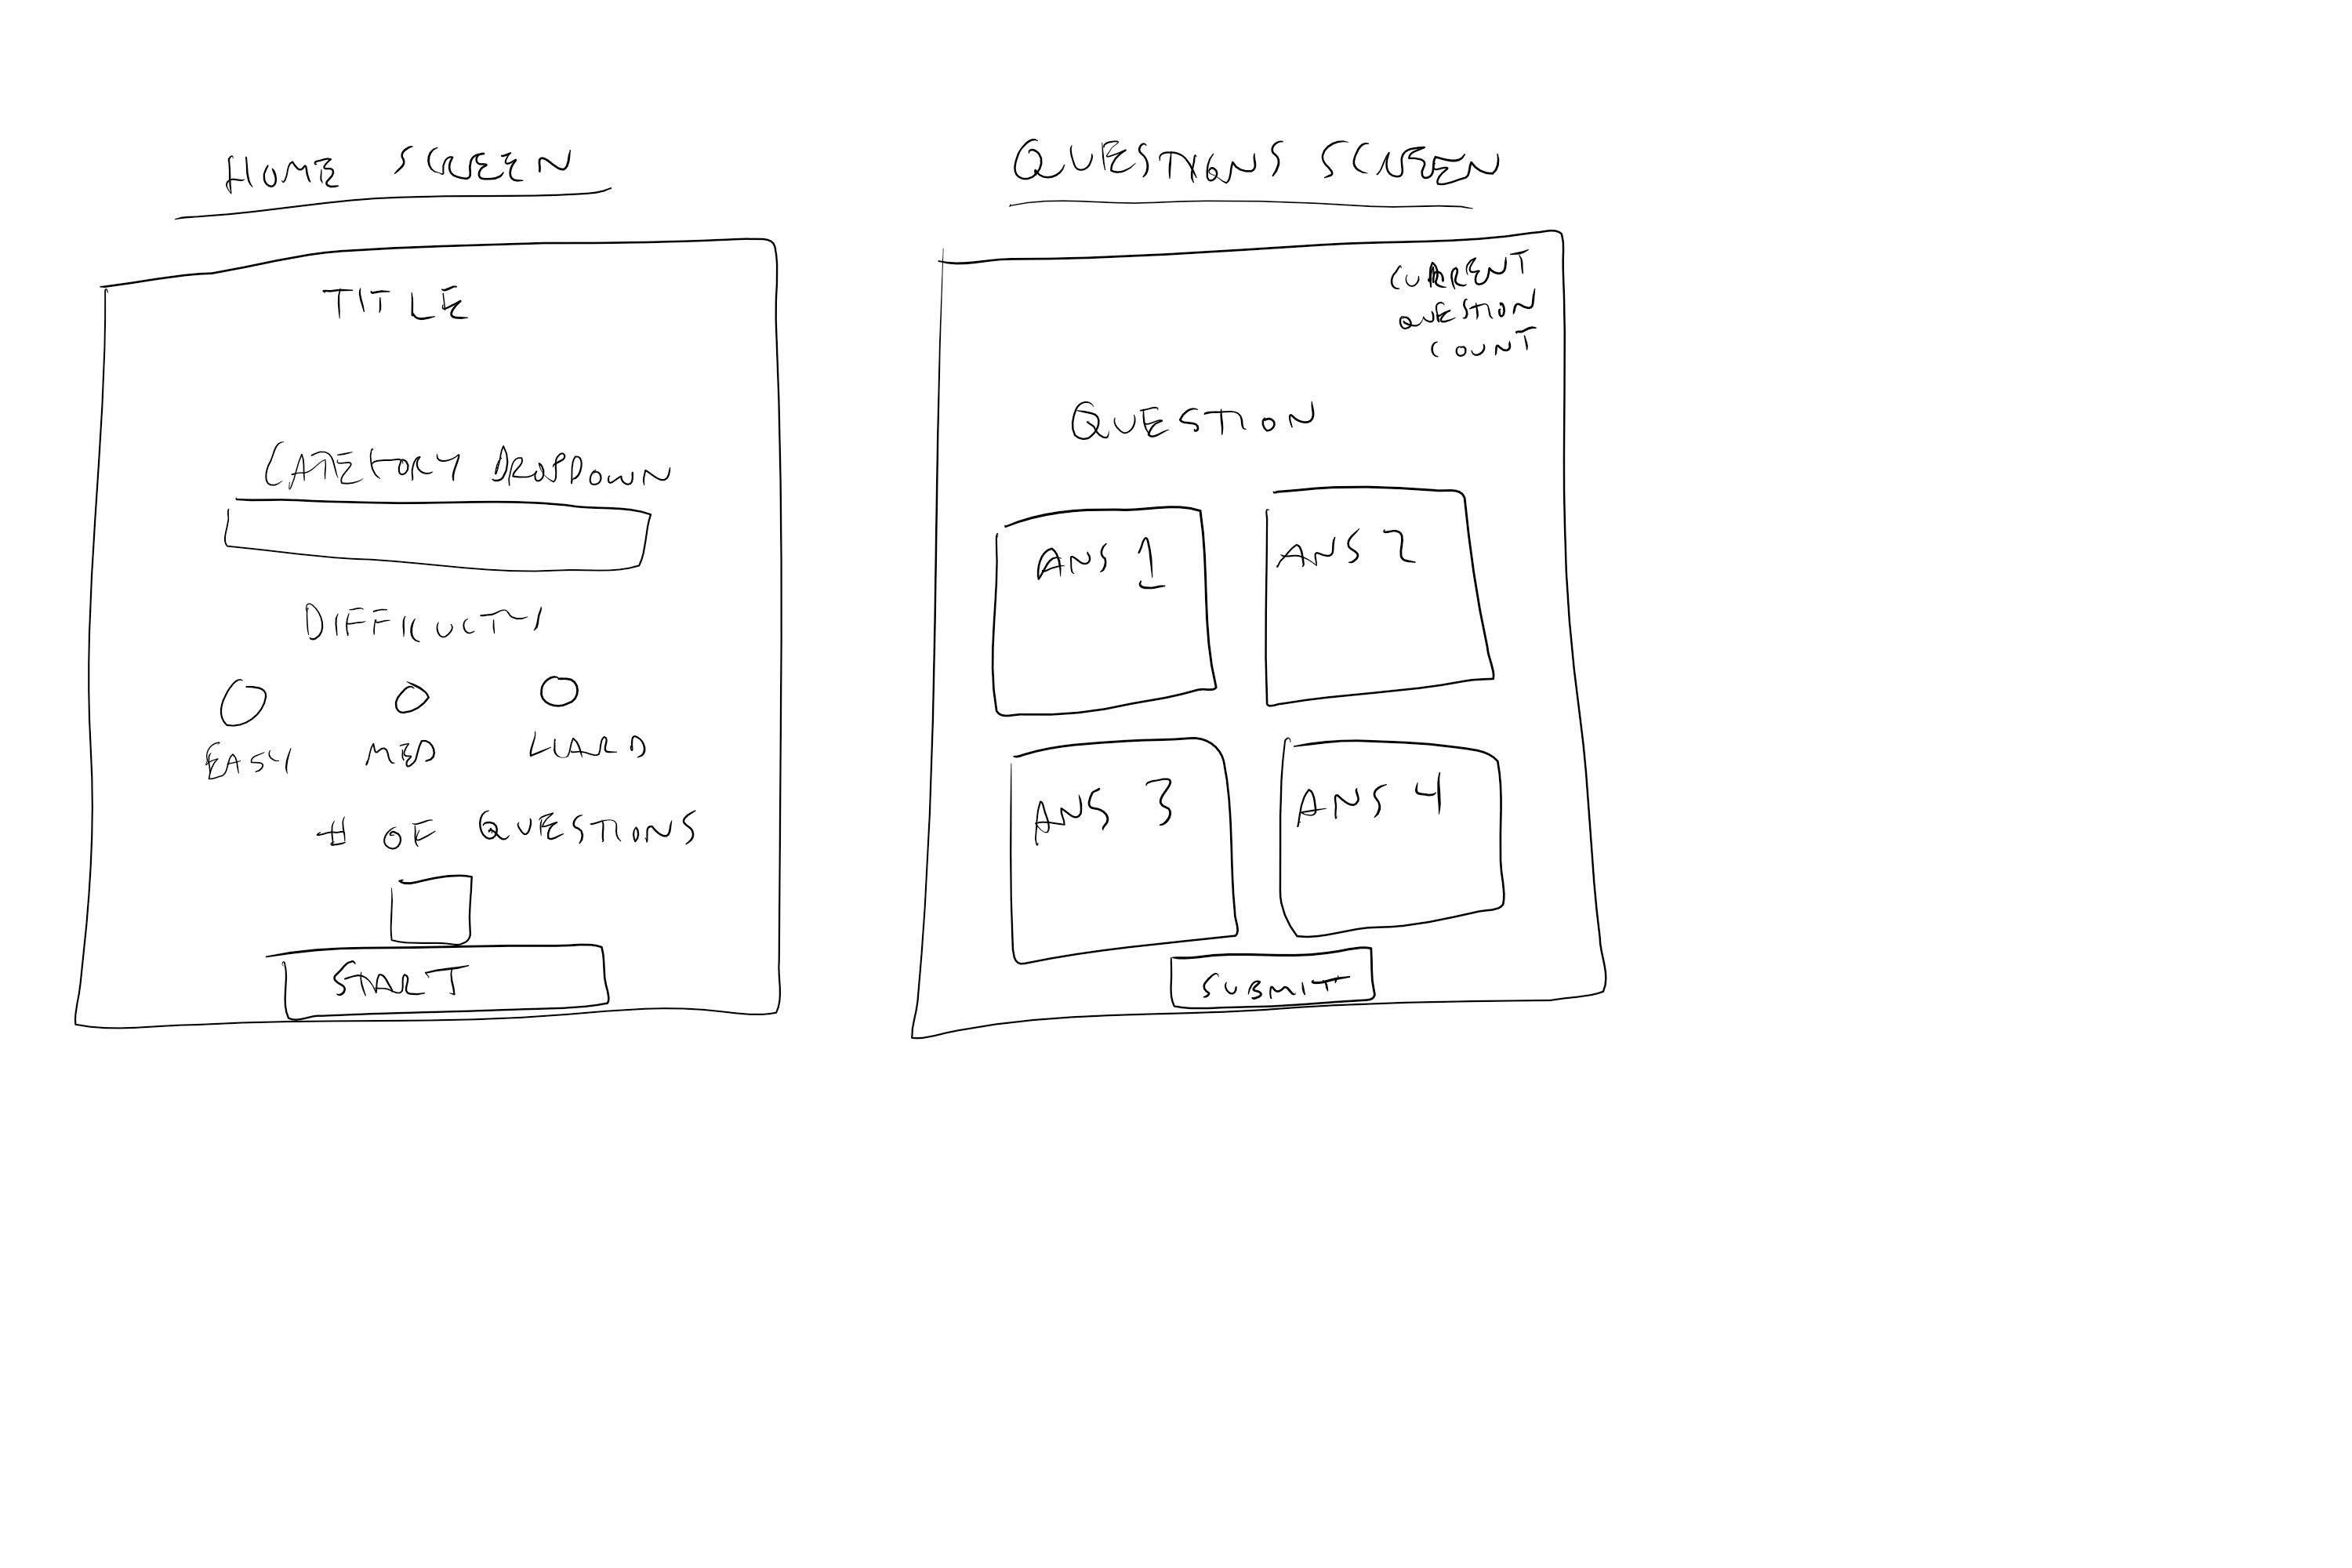 HOME SCREEN
TITLE
CATEGORY DROPDOWN
DIFFICULTY
EASY MED HARD
# OF QUESTIONS
START
QUESTIONS SCREEN
CURRENT
QUESTION
COUNT
QUESTION
ANS 1 ANS 2
ANS 3 ANS 4
SUBMIT